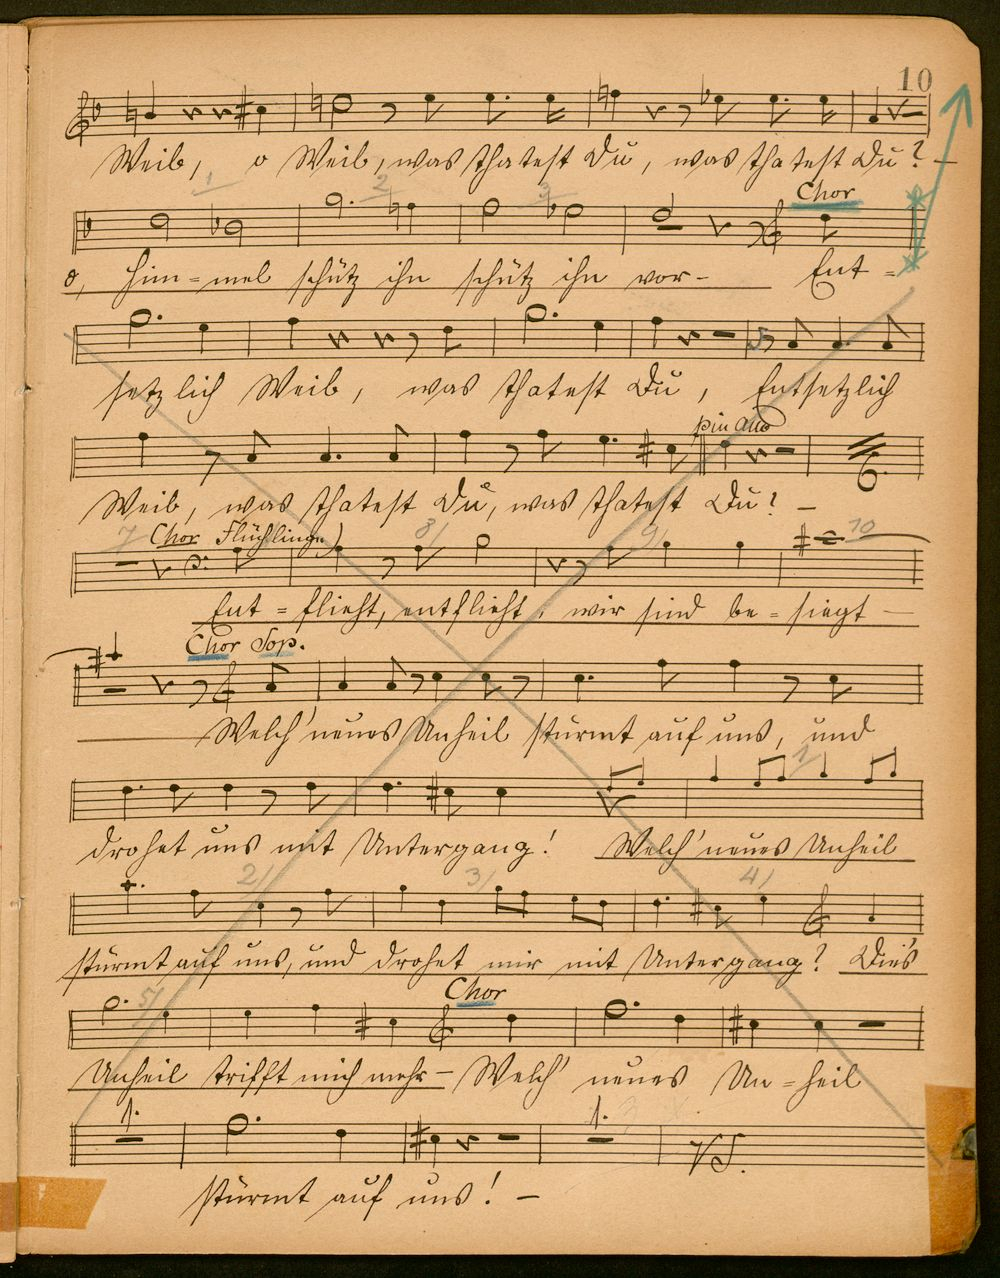 10
Weib, o Weib, was thatest Du, was thatest Du? –
1 2 3
Chor
o, Him=mel schütz ihn schütz ihn vor– Ent=
setzlich Weib, was thatest Du, Entsetzlich
Weib, was thatest Du, was thatest Du? –
7 Chor Flüchlinge) 8/ 9/ 10
Ent=flieht, entflieht, wir sind be=siegt –
Chor Sop.
Welch' neues Unheil stürmt auf uns, und
1/
drohet uns mit Untergang! Welch' neues Unheil
2/ 3/ 4/
stürmt auf uns, und drohet mir mit Untergang? Dies
5/ Chor
Unheil trifft mich mehr – Welch' neues Un=heil
1. 1. 3
VS.
stürmt auf uns! –